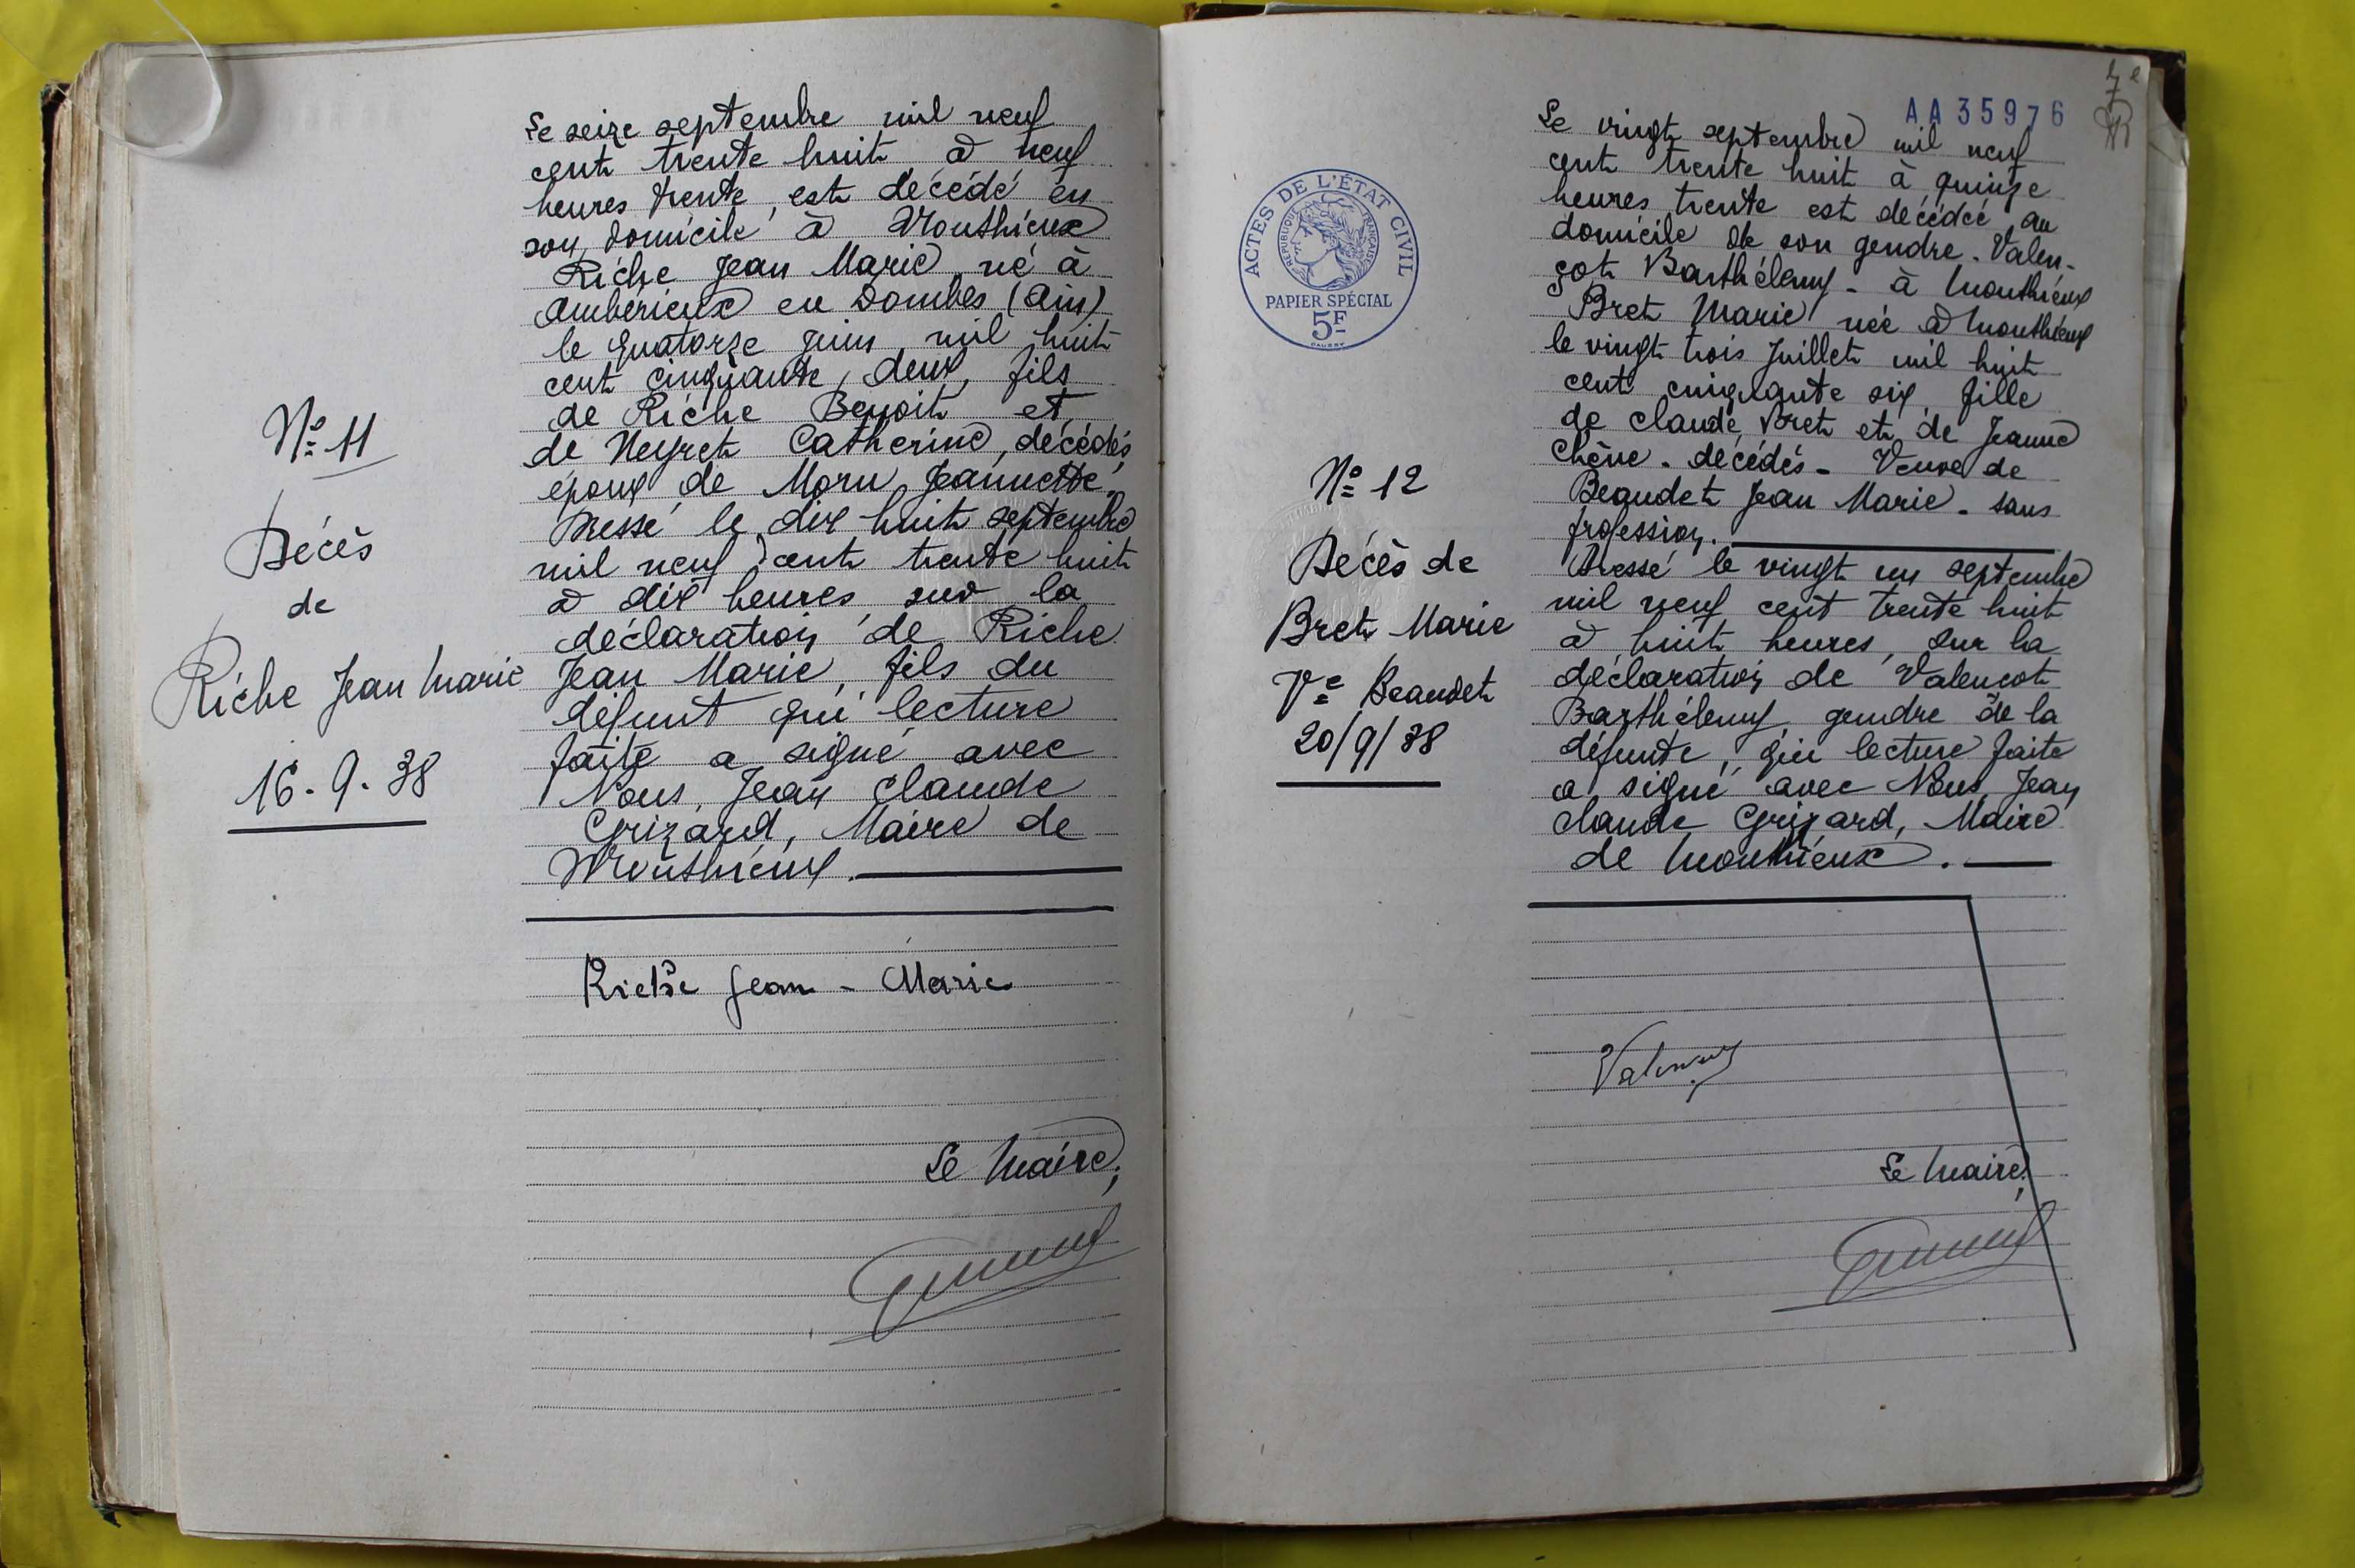 Le seize septembre mil neuf
cent trente huit à neuf
heures trente est décédé en
son domicile à Monthieux
Riche Jean Marie né à
Ambérieux en Dombes (Ain)
le quatorze juin mil huit
cent cinquante deux, fils
de Riche Benoit et
de Neyret Catherine, décédés,
époux de Moru Jeannette.
Dressé le dix huit septembre
mil neuf cent trente huit
à dix heures sur la
déclaration de Riche
Jean Marie, fils du
défunt qui lecture
faite a signé avec
Nous, Jean Claude
Grizard, Maire de
Monthieux.
N° 11
Décès
de
Riche Jean Marie
16-9-38
Riche Jean-Marie
Le Maire,
AA35976
7e
Le vingt septembre mil neuf
cent trente huit à quinze
heures trente est décédée au
domicile de son gendre - Valen-
çot Barthélemy - à Monthieux
Bret Marie née à Monthieux
le vingt trois Juillet mil huit
cent cinquante six, fille
de Claude Bret et de Jeanne
Chêne - décédés - Veuve de
Beaudet Jean Marie - sans
profession.
Dressé le vingt un septembre
mil neuf cent trente huit
à huit heures, sur la
déclaration de Valençot
Barthélemy, gendre de la
défunte, qui lecture faite
a signé avec Nous, Jean
Claude Grizard, Maire
de Monthieux.
ACTES DE L'ÉTAT CIVIL
RÉPUBLIQUE FRANÇAISE
PAPIER SPÉCIAL
5F
N° 12
Décès de
Bret Marie
Ve Beaudet
20/9/38
Le Maire,